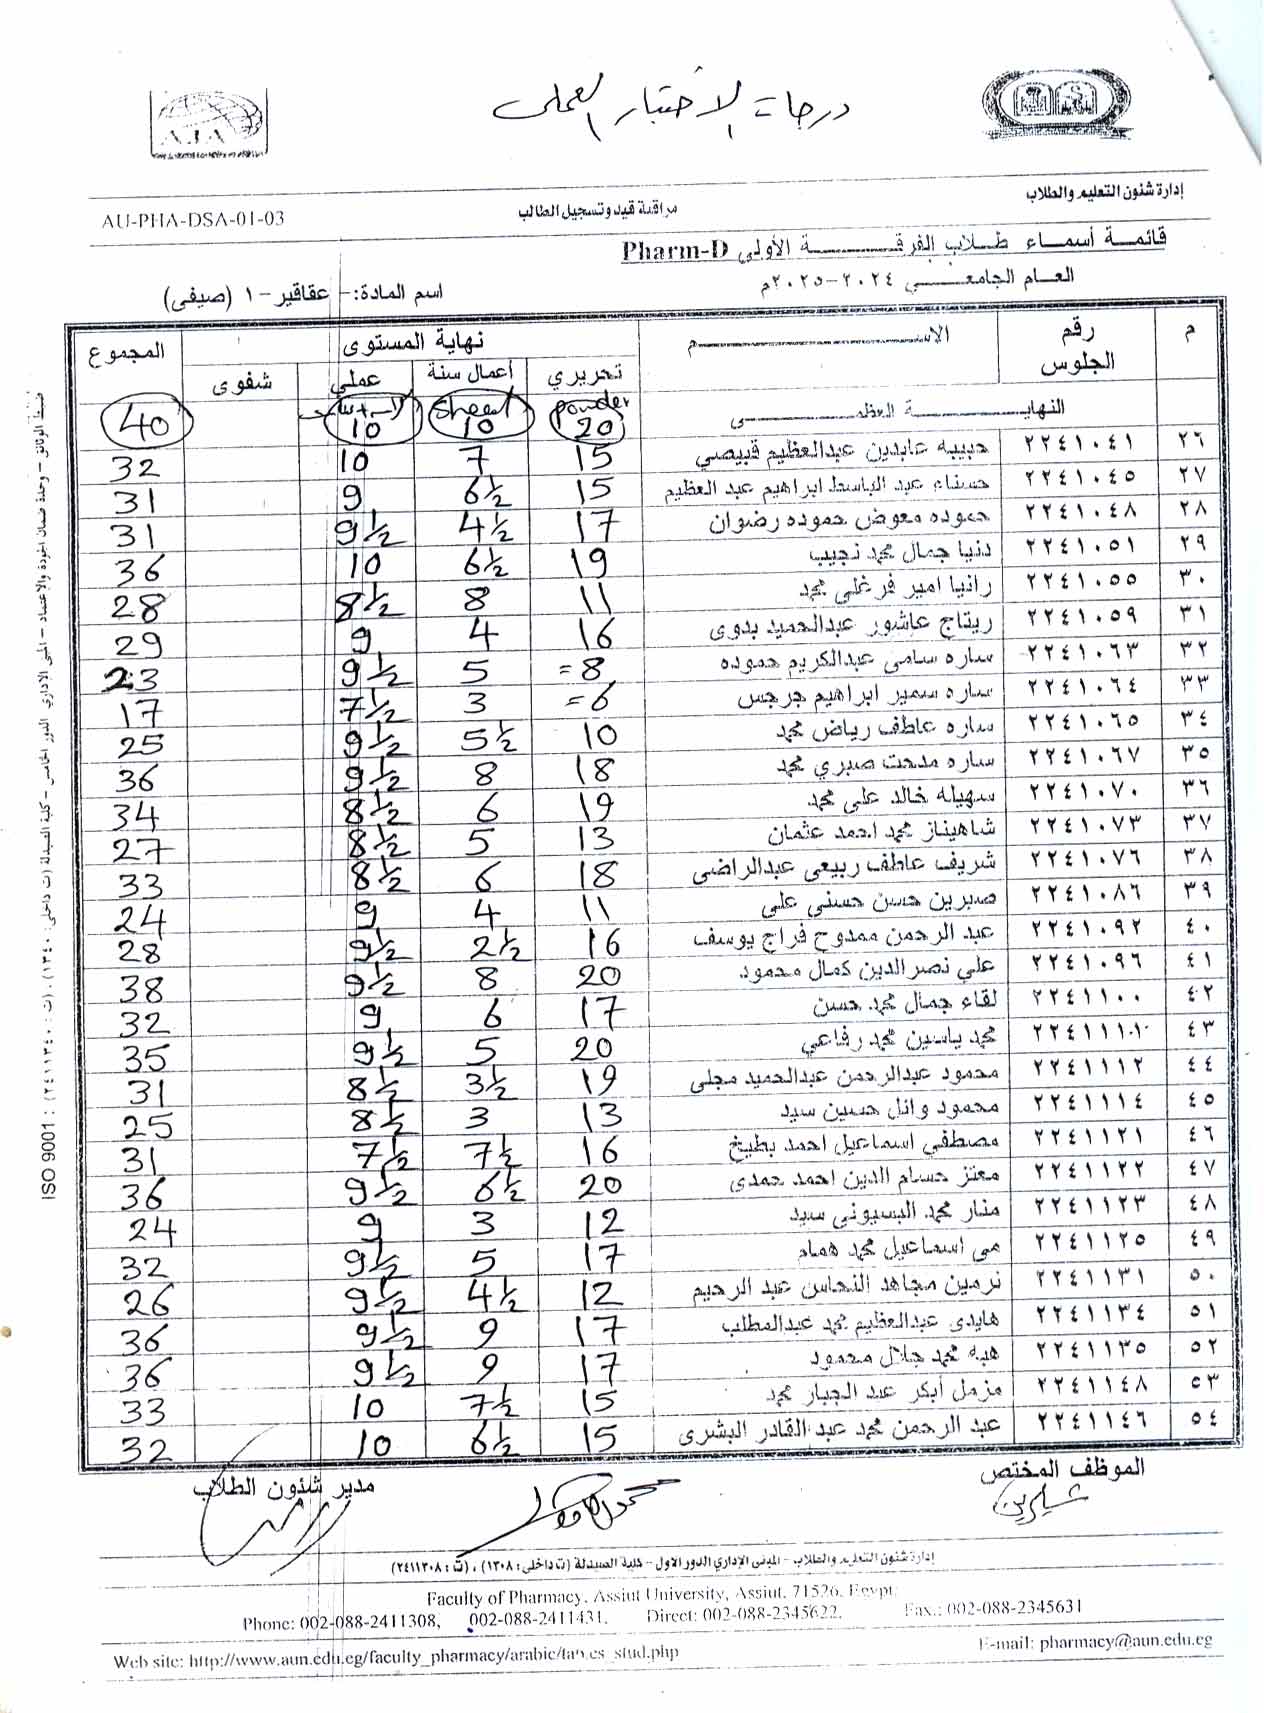 درجات الاختبار العملى
AJA
إدارة شئون التعليم والطلاب
مراقبة قيد وتسجيل الطالب
AU-PHA-DSA-01-03
قائمة أسماء طلاب الفرقة الأولى Pharm-D
العام الجامعى ٢٠٢٤-٢٠٢٥م
اسم المادة:- عقاقير - ١ (صيفى)
م رقم الجلوس الاسم نهاية المستوى المجموع
تحريري أعمال سنة عملي شفوى
النهاية العظمى powder 20 sheet 10 10 40
٢٦ ٢٢٤١٠٤١ حبيبه عابدين عبدالعظيم قبيصي 15 7 10 32
٢٧ ٢٢٤١٠٤٥ حسناء عبد الباسط ابراهيم عبد العظيم 15 6½ 9 31
٢٨ ٢٢٤١٠٤٨ حموده معوض حموده رضوان 17 4½ 9½ 31
٢٩ ٢٢٤١٠٥١ دنيا جمال محمد نجيب 19 6½ 10 36
٣٠ ٢٢٤١٠٥٥ رانيا امير فرغلي محمد 11 8 8½ 28
٣١ ٢٢٤١٠٥٩ ريتاج عاشور عبدالحميد بدوى 16 4 9 29
٣٢ ٢٢٤١٠٦٣ ساره سامى عبدالكريم حموده = 8 5 9½ 23
٣٣ ٢٢٤١٠٦٤ ساره سمير ابراهيم جرجس = 6 3 7½ 17
٣٤ ٢٢٤١٠٦٥ ساره عاطف رياض محمد 10 5½ 9½ 25
٣٥ ٢٢٤١٠٦٧ ساره مدحت صبري محمد 18 8 9½ 36
٣٦ ٢٢٤١٠٧٠ سهيله خالد على محمد 19 6 8½ 34
٣٧ ٢٢٤١٠٧٣ شاهيناز محمد احمد عثمان 13 5 8½ 27
٣٨ ٢٢٤١٠٧٦ شريف عاطف ربيعى عبدالراضى 18 6 8½ 33
٣٩ ٢٢٤١٠٨٦ صبرين حسن حسنى على 11 4 9 24
٤٠ ٢٢٤١٠٩٢ عبد الرحمن ممدوح فراج يوسف 16 2½ 9½ 28
٤١ ٢٢٤١٠٩٦ علي نصر الدين كمال محمود 20 8 9½ 38
٤٢ ٢٢٤١١٠٠ لقاء جمال محمد حسن 17 6 9 32
٤٣ محمد ياسين محمد رفاعي 20 5 9½ 35
٤٤ ٢٢٤١١١٢ محمود عبدالرحمن عبدالحميد مجلى 19 3½ 8½ 31
٤٥ ٢٢٤١١١٤ محمود وائل حسين سيد 13 3 8½ 25
٤٦ ٢٢٤١١٢١ مصطفي اسماعيل احمد بطيخ 16 7½ 7½ 31
٤٧ ٢٢٤١١٢٢ معتز حسام الدين احمد حمدى 20 6½ 9½ 36
٤٨ ٢٢٤١١٢٣ منار محمد البسيونى سيد 12 3 9 24
٤٩ ٢٢٤١١٢٥ مى اسماعيل محمد همام 17 5 9½ 32
٥٠ ٢٢٤١١٣١ نرمين مجاهد النحاس عبد الرحيم 12 4½ 9½ 26
٥١ ٢٢٤١١٣٤ هايدى عبدالعظيم محمد عبدالمطلب 17 9 9½ 36
٥٢ ٢٢٤١١٣٥ هبه محمد جلال محمود 17 9 9½ 36
٥٣ ٢٢٤١١٤٨ مزمل أبكر عبد الجبار محمد 15 7½ 10 33
٥٤ ٢٢٤١١٤٦ عبد الرحمن محمد عبد القادر البشرى 15 6½ 10 32
الموظف المختص
مدير شئون الطلاب
شيرين
إدارة شئون التعليم والطلاب - المبنى الإداري الدور الاول - كلية الصيدلة (ت داخلى: ١٣٠٨)، (ت: ٢٤١١٣٠٨)
Faculty of Pharmacy, Assiut University, Assiut, 71526, Egypt.
Phone: 002-088-2411308, 002-088-2411431, Direct: 002-088-2345622, Fax.: 002-088-2345631
Web site: http://www.aun.edu.eg/faculty_pharmacy/arabic/tables_stud.php E-mail: pharmacy@aun.edu.eg
ضبط الوثائق - وحدة ضمان الجودة والاعتماد - المبنى الإداري الدور الخامس - كلية الصيدلة (ت داخلى: ١٣٤٠)، (ت: ٢٤١١٣٤٠) : ISO 9001